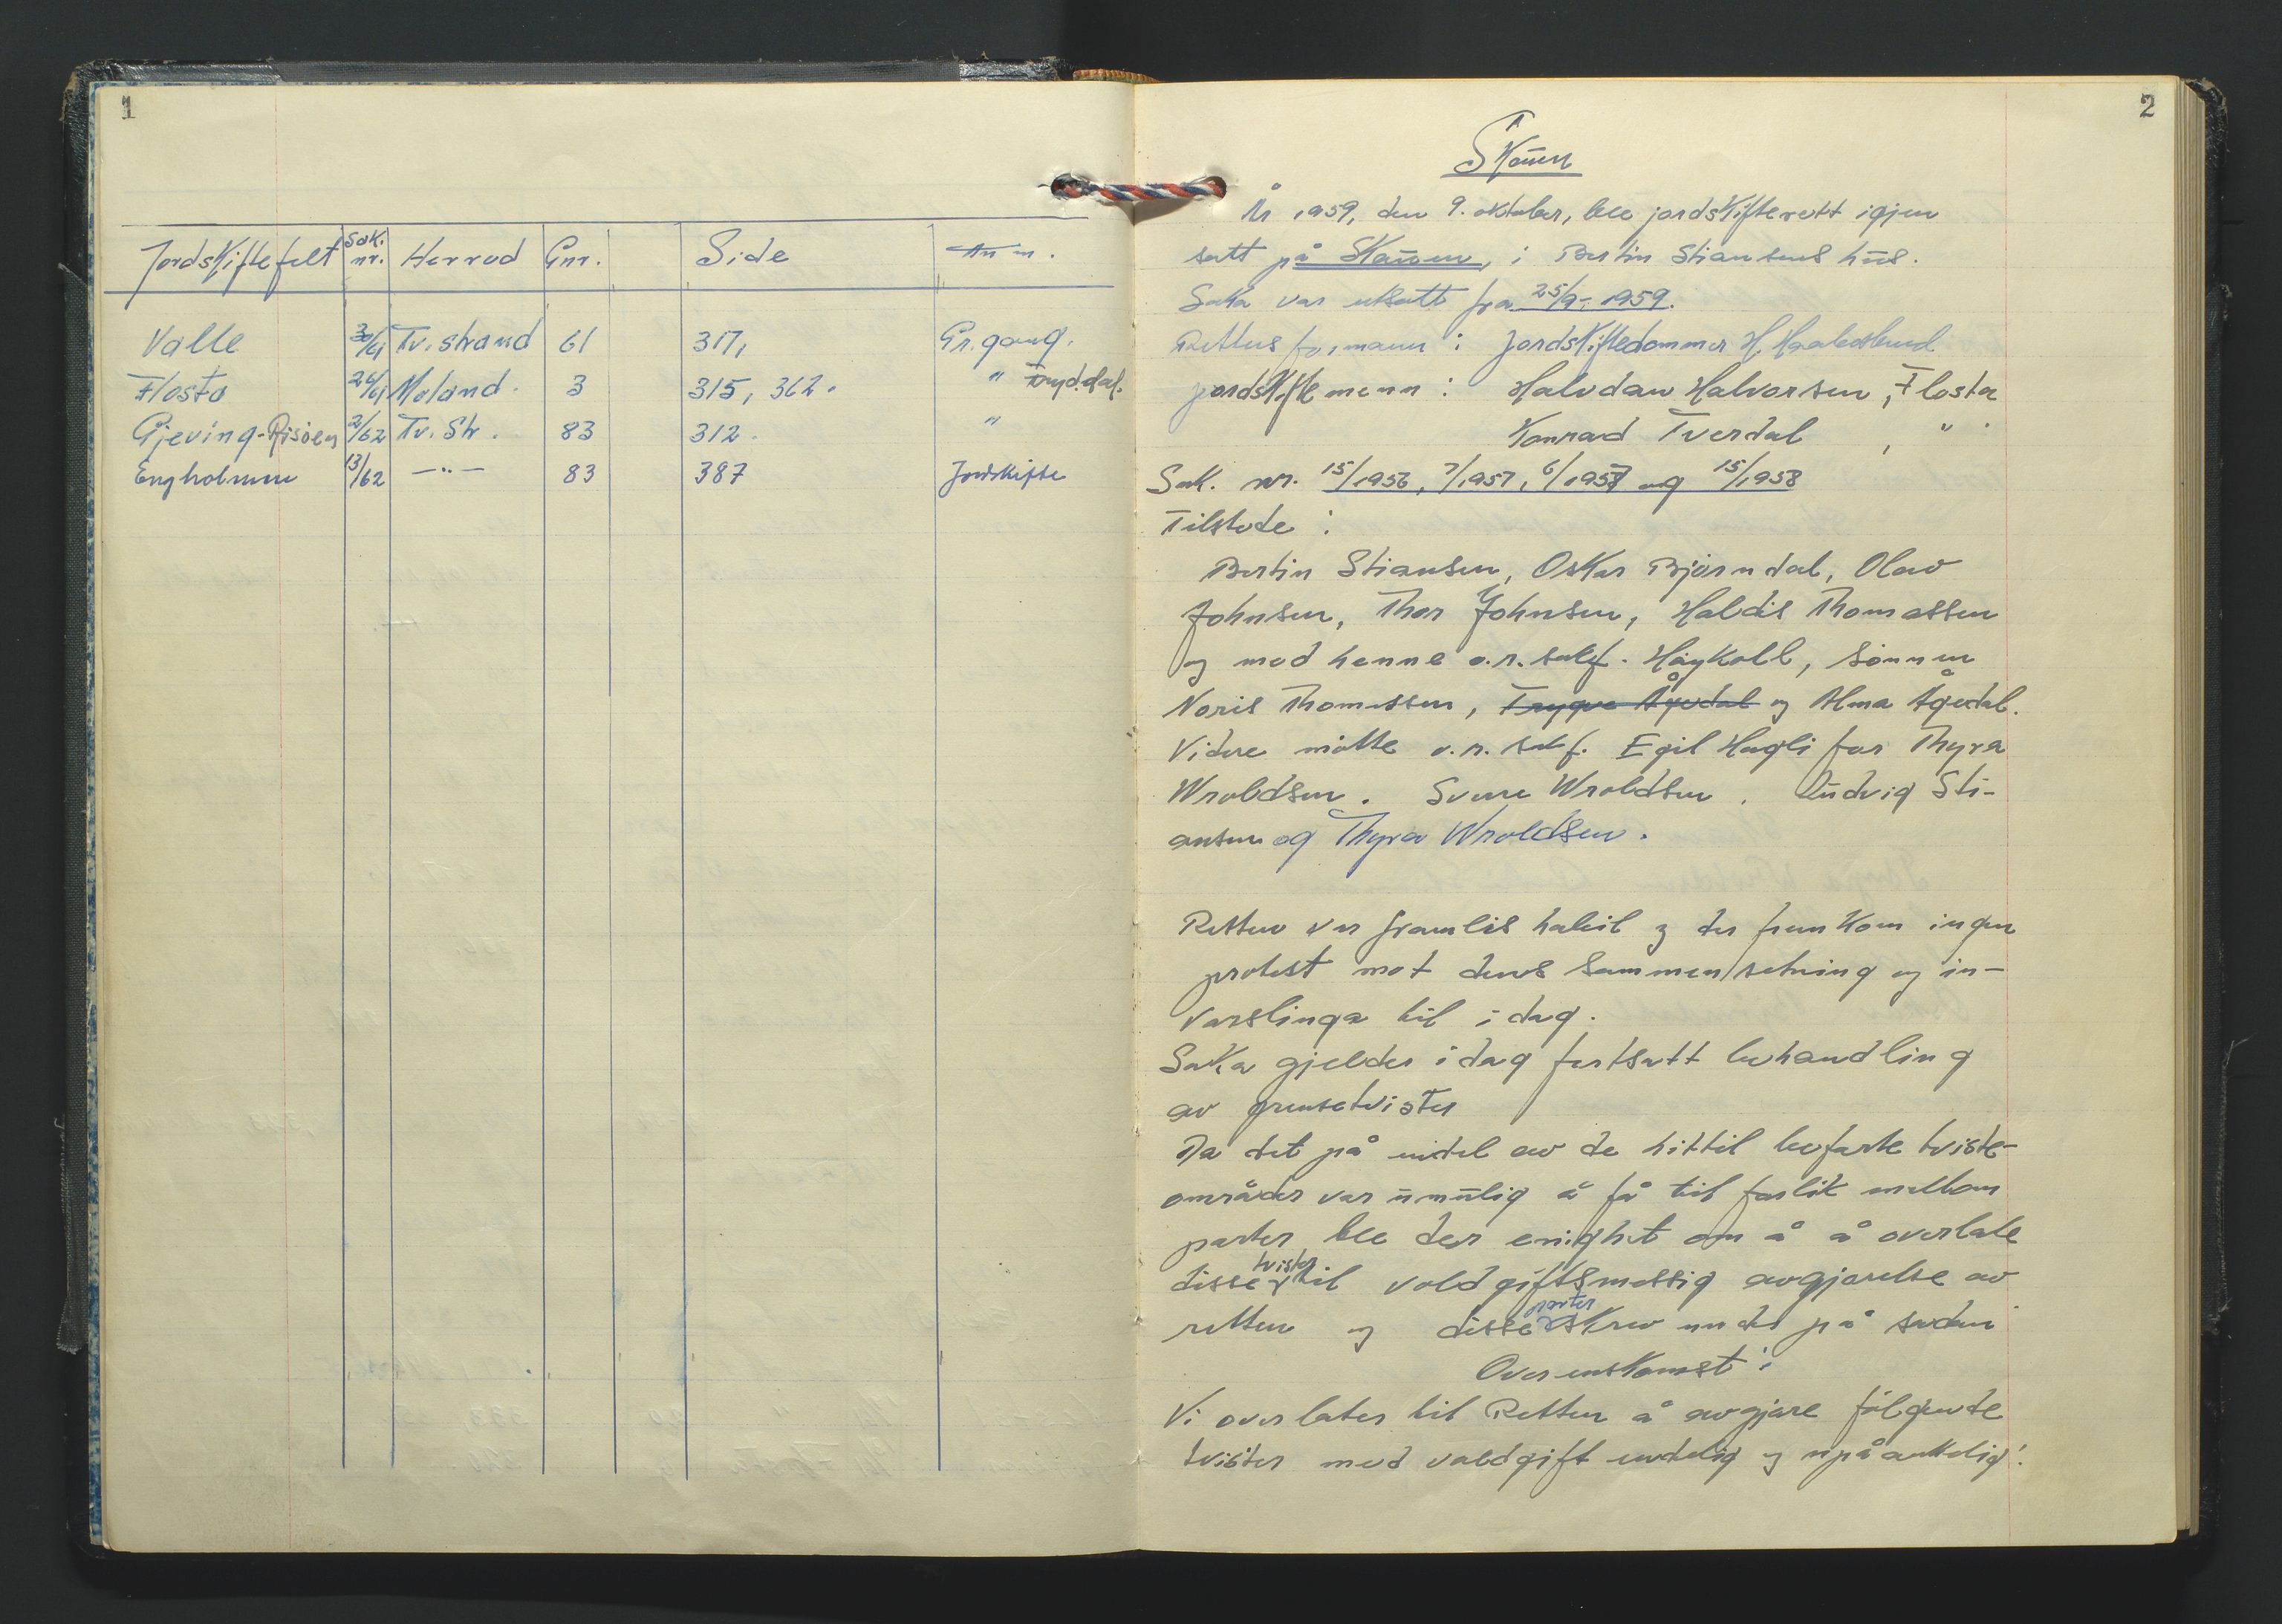 1
Jordskiftefelt Sak. nr. Herred Gnr. Side Anm.
Valle 30/61 Tv.strand 61 317, Gr.gang.
Flosta 26/61 Moland. 3 315, 362. "
Gjeving-Risøen 2/62 Tv. Str. 83 312. "
Engholmen 13/62 —"— 83 387 Jordskifte
2
Skåuen
År 1959, den 9. oktober, ble jordskifterett igjen
satt på i Bertin Stiansens hus.
Saka var utsatt fra 25/9-1959.
Rettens formann: jordskiftedommer H.
jordskiftemenn: Halvdan Halvorsen, Flosta
Konrad Tverdal, "
Sak. nr. 15/1956, 7/1957, 6/1958 og 15/1958
Tilstede:
Bertin Stiansen, Oskar Bjørndal, Olav
Johnsen, Thor Johnsen, Haldis Thomassen
og med henne o.r.sakf. Høykoll, sønnen
Noris Thomassen, Trygve Ågedal og Alma Ågedal.
Videre møtte o.r. sakf. Egil Hagli for Thyra
Wroldsen. Sverre Wroldsen. Ludvig Sti-
ansen og Thyra Wroldsen.
Retten var framleis habil og der framkom ingen
protest mot dens sammensetning og in-
varslinga til idag.
Saka gjelder idag fortsatt behandling
av grensetvister
Da det på endel av de hittil befarte tviste-
områder var umulig å få til forlik mellom
parter ble der enighet om å å overlate
disse tvister til voldgiftsmessig avgjørelse av
retten og disse parter skrev under på sådan
Overenskomst:
Vi overlater til Retten å avgjøre følgende
tvister med voldgift endelig og upåankelig: